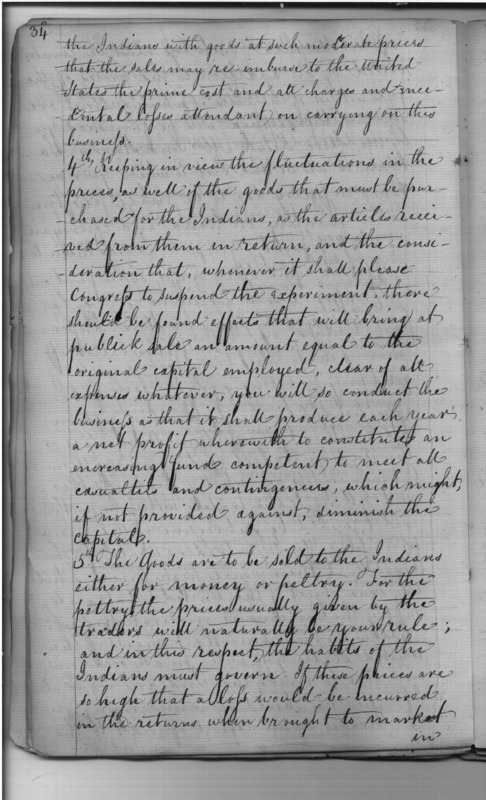 34
the Indians with goods at such moderate prices
that the sales may re imburse to the United
States the prime cost and all charges and inci-
-dental losses attendant on carrying on this
business.
4th Keeping in view the fluctuations in the
prices, as well of the goods that must be pur-
-chased for the Indians, as the articles recei-
-ved from them in return, and the consi-
-deration that, whenever it shall please
Congress to suspend the experiment, there
should be found effects that will bring at
publick sale an amount equal to the
original capital employed, clear of all
expenses whatever, you will so conduct the
business as that it shall produce each year
a net profit wherewith to constitute an
encreasing fund competent to meet all
casualties and contingencies, which might,
if not provided against, diminish the
Capital.
5th The Goods are to be sold to the Indians
either for money or peltry. For the
peltry the prices usually given by the
traders will naturally be your rule;
and in this respect, the habits of the
Indians must govern. If these prices are
so high that a loss would be incurred
in the returns when brought to market
in